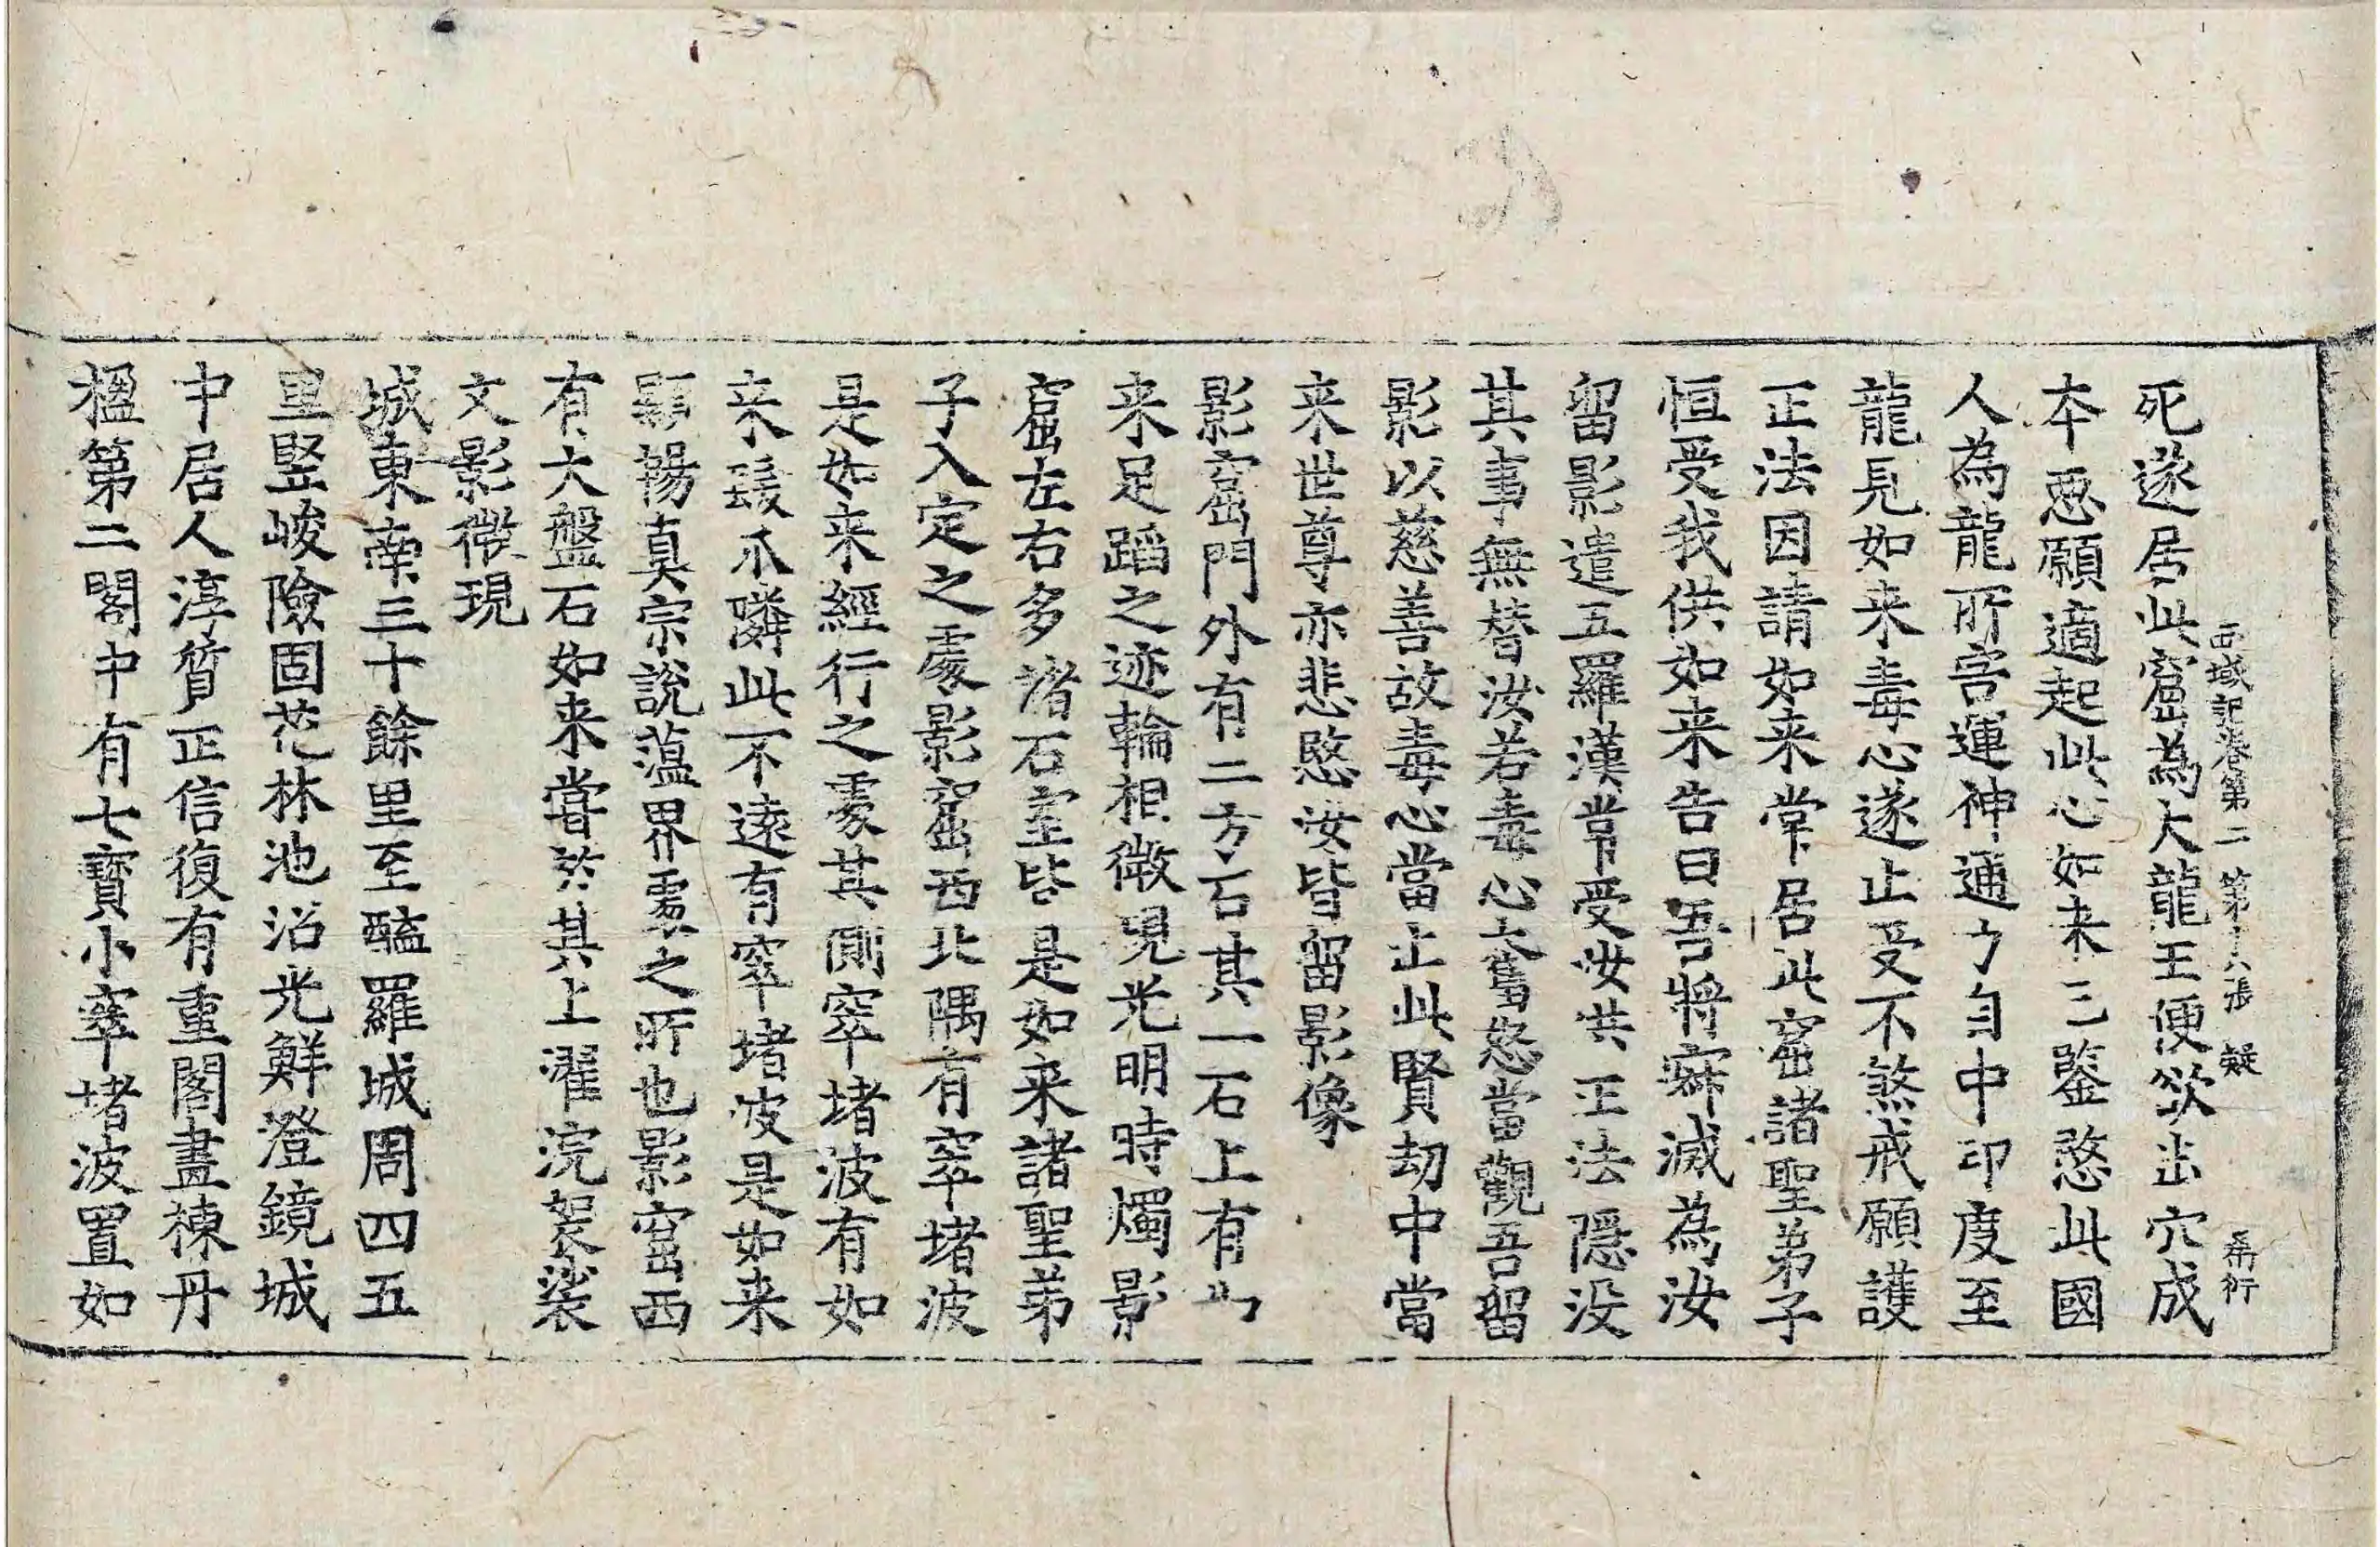 西域記卷第二 第十八張 疑 希衍
死遂居此窟為大龍王便欲出穴成
本惡願適起此心如来已鑒愍此國
人為龍所害運神通力自中印度至
龍見如来毒心遂止受不煞戒願護
正法因請如来常居此窟諸聖弟子
恒受我供如来告曰吾將寂滅為汝
留影遣五羅漢常受汝供正法隱没
其事無替汝若毒心奮怒當觀吾留
影以慈善故毒心當止此賢劫中當
来世尊亦悲愍汝皆留影像
影窟門外有二方石其一石上有如
来足蹈之迹輪相微現光明時燭影
窟左右多諸石室皆是如来諸聖弟
子入定之處影窟西北隅有窣堵波
是如来經行之處其側窣堵波有如
来髮爪隣此不遠有窣堵波是如来
顯暢真宗說蕰界處之所也影窟西
有大盤石如来嘗於其上濯浣袈裟
文影微現
城東南三十餘里至醯羅城周四五
里竪峻險固花林池沼光鮮澄鏡城
中居人淳質正信復有重閣畫棟丹
楹第二閣中有七寶小窣堵波置如